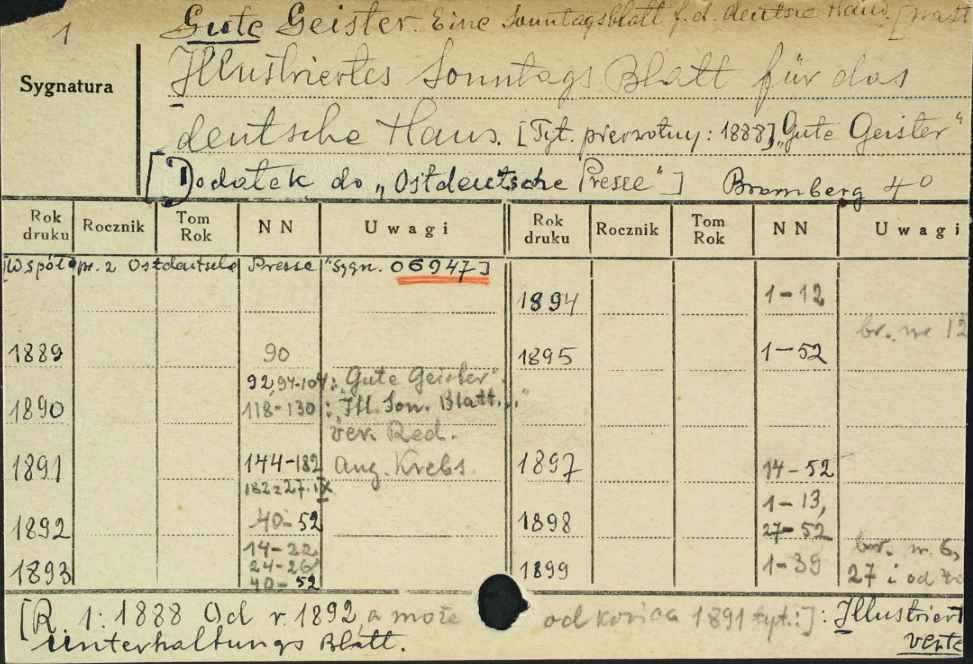 1
Gute Geister. Eine Sonntagsblatt f. d. deutsche Haus.
Sygnatura
Illustriertes Sonntags Blatt für das
deutsche Haus. [Tyt. pierwotny: 1888] „Gute Geister"
[Dodatek do „Ostdeutsche Presse"] Bromberg 4°
Rok druku Rocznik Tom Rok NN Uwagi Rok druku Rocznik Tom Rok NN Uwagi
[Współpr. z Ostdeutsche Presse" Sygn. 06947]
1894 1-12
br. nr 12
1889 90 1895 1-52
92,94-104: „Gute Geister".
1890 118-130: „Ill. Son. Blatt..."
ver. Red.
1891 144-182 Aug. Krebs. 1897 14-52
182z27.IX
1-13,
1892 40-52 1898 27-52
14-22
24-26 1-39 br. nr. 6,
1893 40-52 1899 27 i od
[R. 1: 1888 Od r. 1892, a może od końca 1891 tyt.:]: Illustriert
Unterhaltungs Blatt.